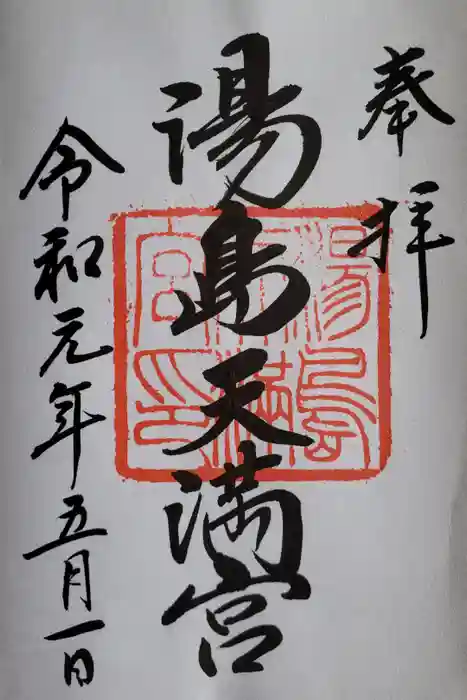 奉拝
湯島天満宮
令和元年五月一日
湯島
天満
宮印